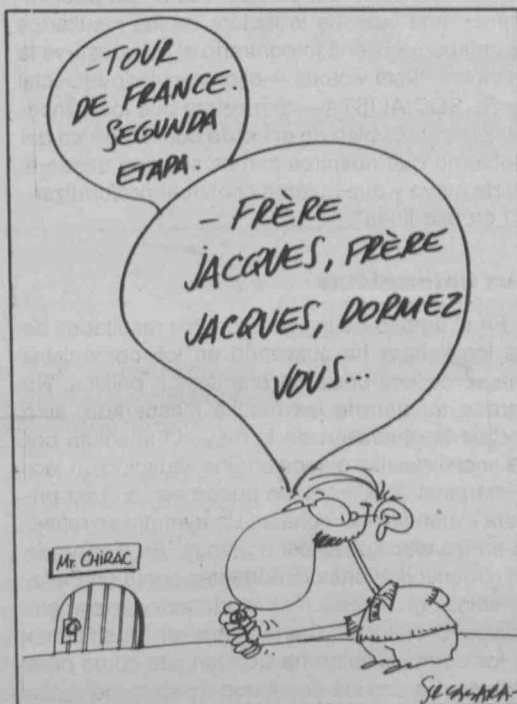 -TOUR
DE FRANCE.
SEGUNDA
ETAPA.
- FRÈRE
JACQUES, FRÈRE
JACQUES, DORMEZ
VOUS..
Mr. CHIRAC